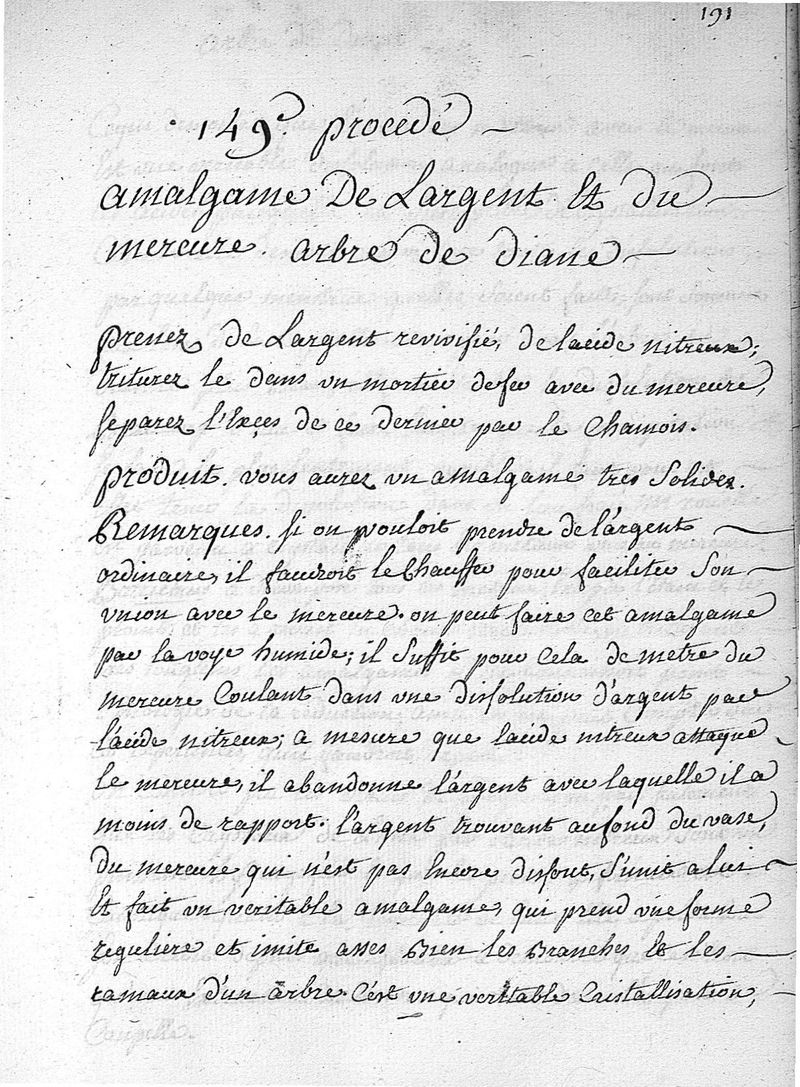 191
149e procedé
amalgame De Largent Et du
mercure. arbre de diane
prenez de Largent revivifié, de lacide nitreux;
triturez le dans un mortier de fer avec du mercure,
separez l'Exces de ce dernier par le Chamois.
produit. vous aurez un amalgame tres Solide.
Remarques. si on vouloit prendre de l'argent
ordinaire, il faudroit le Chauffer pour faciliter Son
vnion avec le mercure. on peut faire cet amalgame
par la voye humide; il Suffit pour Cela de metre du
mercure Coulant dans vne dissolution d'argent par
l'acide nitreux; a mesure que lacide nitreux attaque
le mercure, il abandonne l'argent avec laquelle il a
moins de rapport. l'argent trouvant au fond du vase,
du mercure qui n'est pas Encore dissout, S'unit a lui
Et fait vn veritable amalgame, qui prend vne forme
reguliere et imite asses Bien les Branches Et les
ramaux d'un arbre. C'est vne veritable Cristallisation,